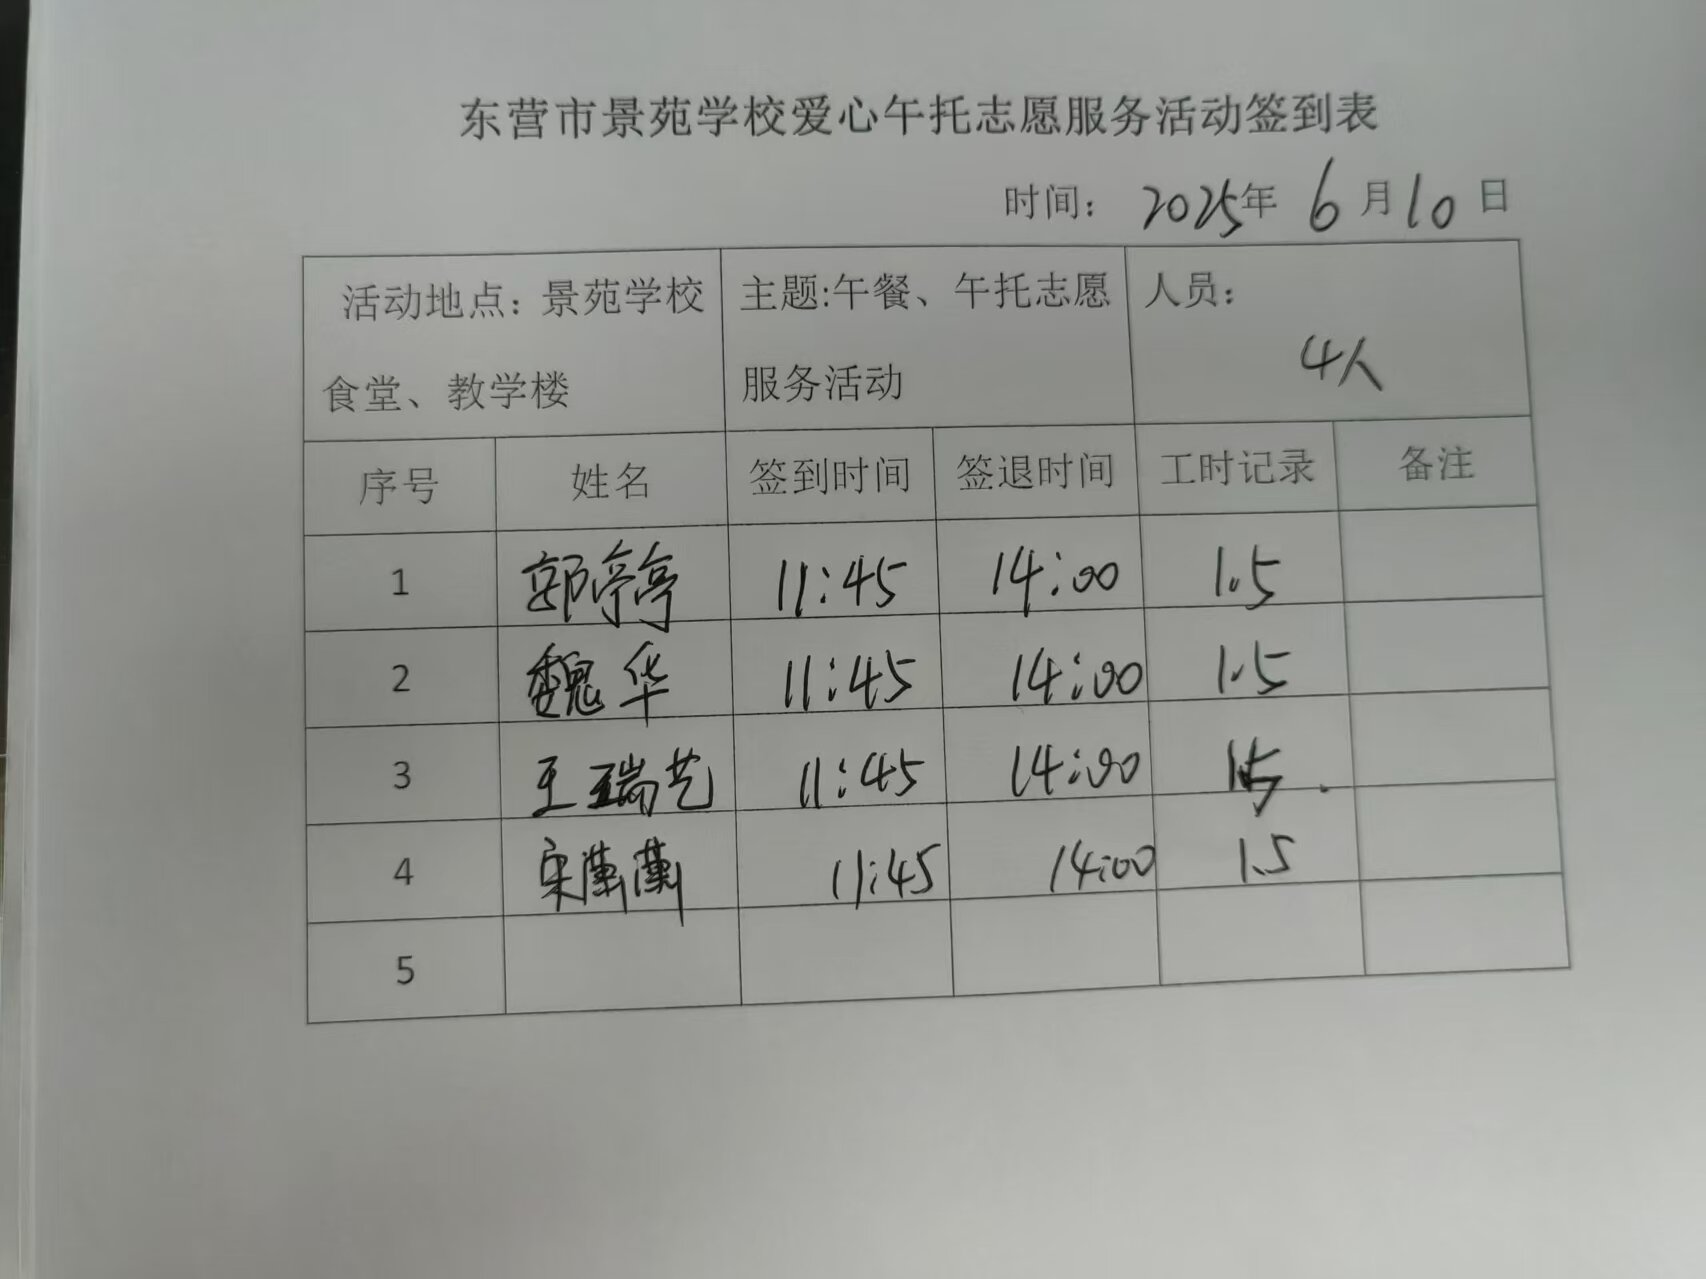 东营市景苑学校爱心午托志愿服务活动签到表
时间： 2025年 6月10日
活动地点：景苑学校食堂、教学楼 主题:午餐、午托志愿服务活动 人员： 4人
序号 姓名 签到时间 签退时间 工时记录 备注
1 郭婷婷 11:45 14:00 1.5
2 魏华 11:45 14:00 1.5
3 王瑞艺 11:45 14:00 1.5
4 宋 11:45 14:00 1.5
5